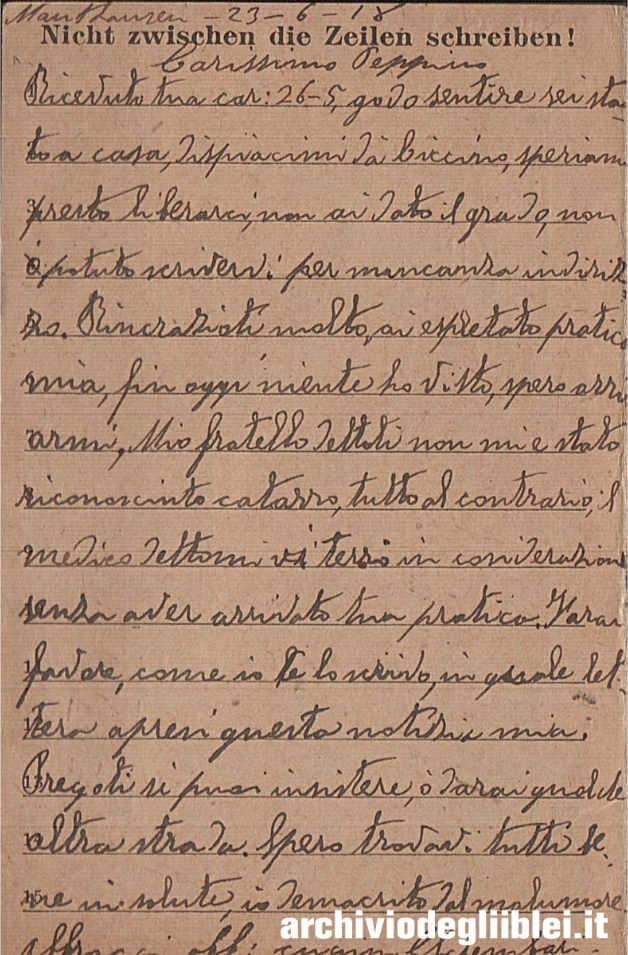 Mauthausen - 23 - 6 - 18
Nicht zwischen die Zeilen schreiben!
Carissimo Peppino
Riceduto tua car: 26-5, godo sentire sei sta-
to a casa, dispiacimi da Ciccino, speriam
presto liberarci, non ai dato il grado, non
ò potuto scriverVi per mancanza indiriz-
zo. Rincrazioti molto, ai espletato pratica
mia, fin oggi niente ho visto, spero arri
armi, Mio fratello dettoti non mi è stato
riconosciuto catarro, tutto al contrario, il
medico dettomi vi terrò in considerazione
senza aver arrivato tua pratica. Farai
favore, come io te lo scrivo, in quale let-
tera apresi questa notizia mia.
Pregoti si puoi insistere, ò darai qualche
altra strada. Spero trovarvi tutti be-
15
ne in salute, io demacrito dal malumore.
archiviodegliiblei.it